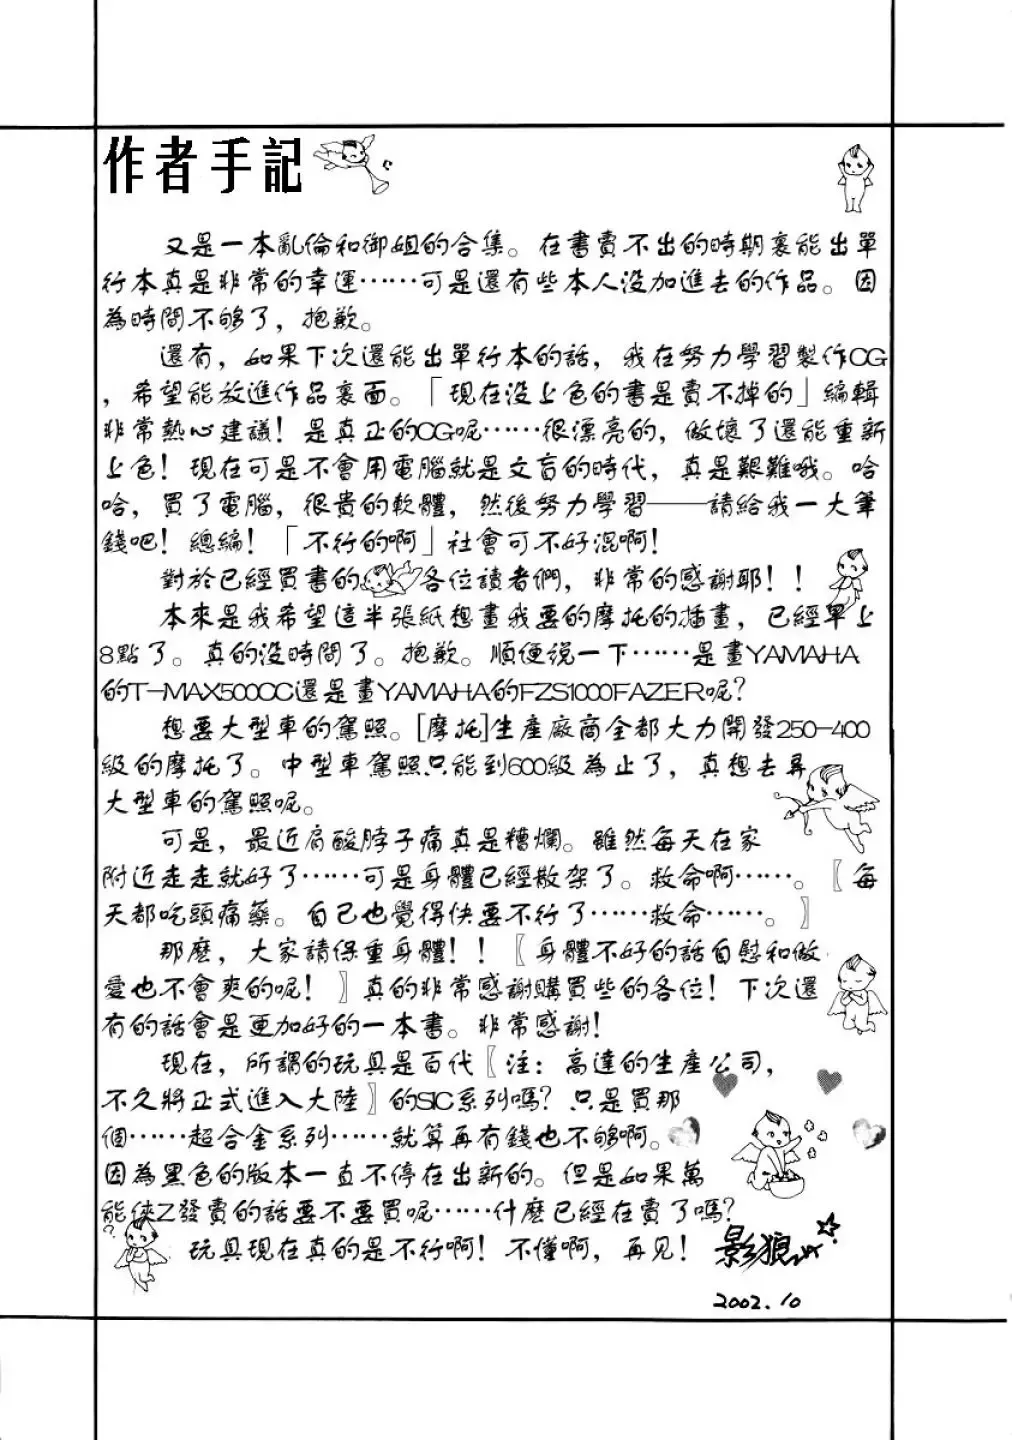 作者手記
又是一本亂倫和御姐的合集。在書賣不出的時期裏能出單
行本真是非常的幸運……可是還有些本人没加進去的作品。因
為時間不够了，抱歉。
還有，如果下次還能出單行本的話，我在努力學習製作CG
，希望能放進作品裏面。「現在没上色的書是賣不掉的」編輯
非常熱心建議！是真正的CG呢……很漂亮的，做壞了還能重新
上色！現在可是不會用電腦就是文盲的時代，真是艱難哦。哈
哈，買了電腦，很貴的軟體，然後努力學習——請給我一大筆
錢吧！總編！「不行的啊」社會可不好混啊！
對於已經買書的各位讀者們，非常的感謝耶！！
本來是我希望這半張紙想畫我要的摩托的插畫，已經早上
8點了。真的没時間了。抱歉。順便說一下……是畫YAMAHA
的T-MAX500CC還是畫YAMAHA的FZS1000FAZER呢？
想要大型車的駕照。[摩托]生產廠商全都大力開發250-400
級的摩托了。中型車駕照只能到600級為止了，真想去弄
大型車的駕照呢。
可是，最近肩酸脖子痛真是糟爛。雖然每天在家
附近走走就好了……可是身體已經散架了。救命啊……。〖每
天都吃頭痛藥。自己也覺得快要不行了……救命……。〗
那麼，大家請保重身體！！〖身體不好的話自慰和做
愛也不會爽的呢！〗真的非常感謝購買些的各位！下次還
有的話會是更加好的一本書。非常感謝！
現在，所謂的玩具是百代〖注：高達的生產公司，
不久將正式進入大陸〗的SIC系列嗎？只是買那
個……超合金系列……就算再有錢也不够啊。
因為黑色的版本一直不停在出新的。但是如果萬
能俠Z發賣的話要不要買呢……什麼已經在賣了嗎？
玩具現在真的是不行啊！不懂啊，再見！影狼
2002.10